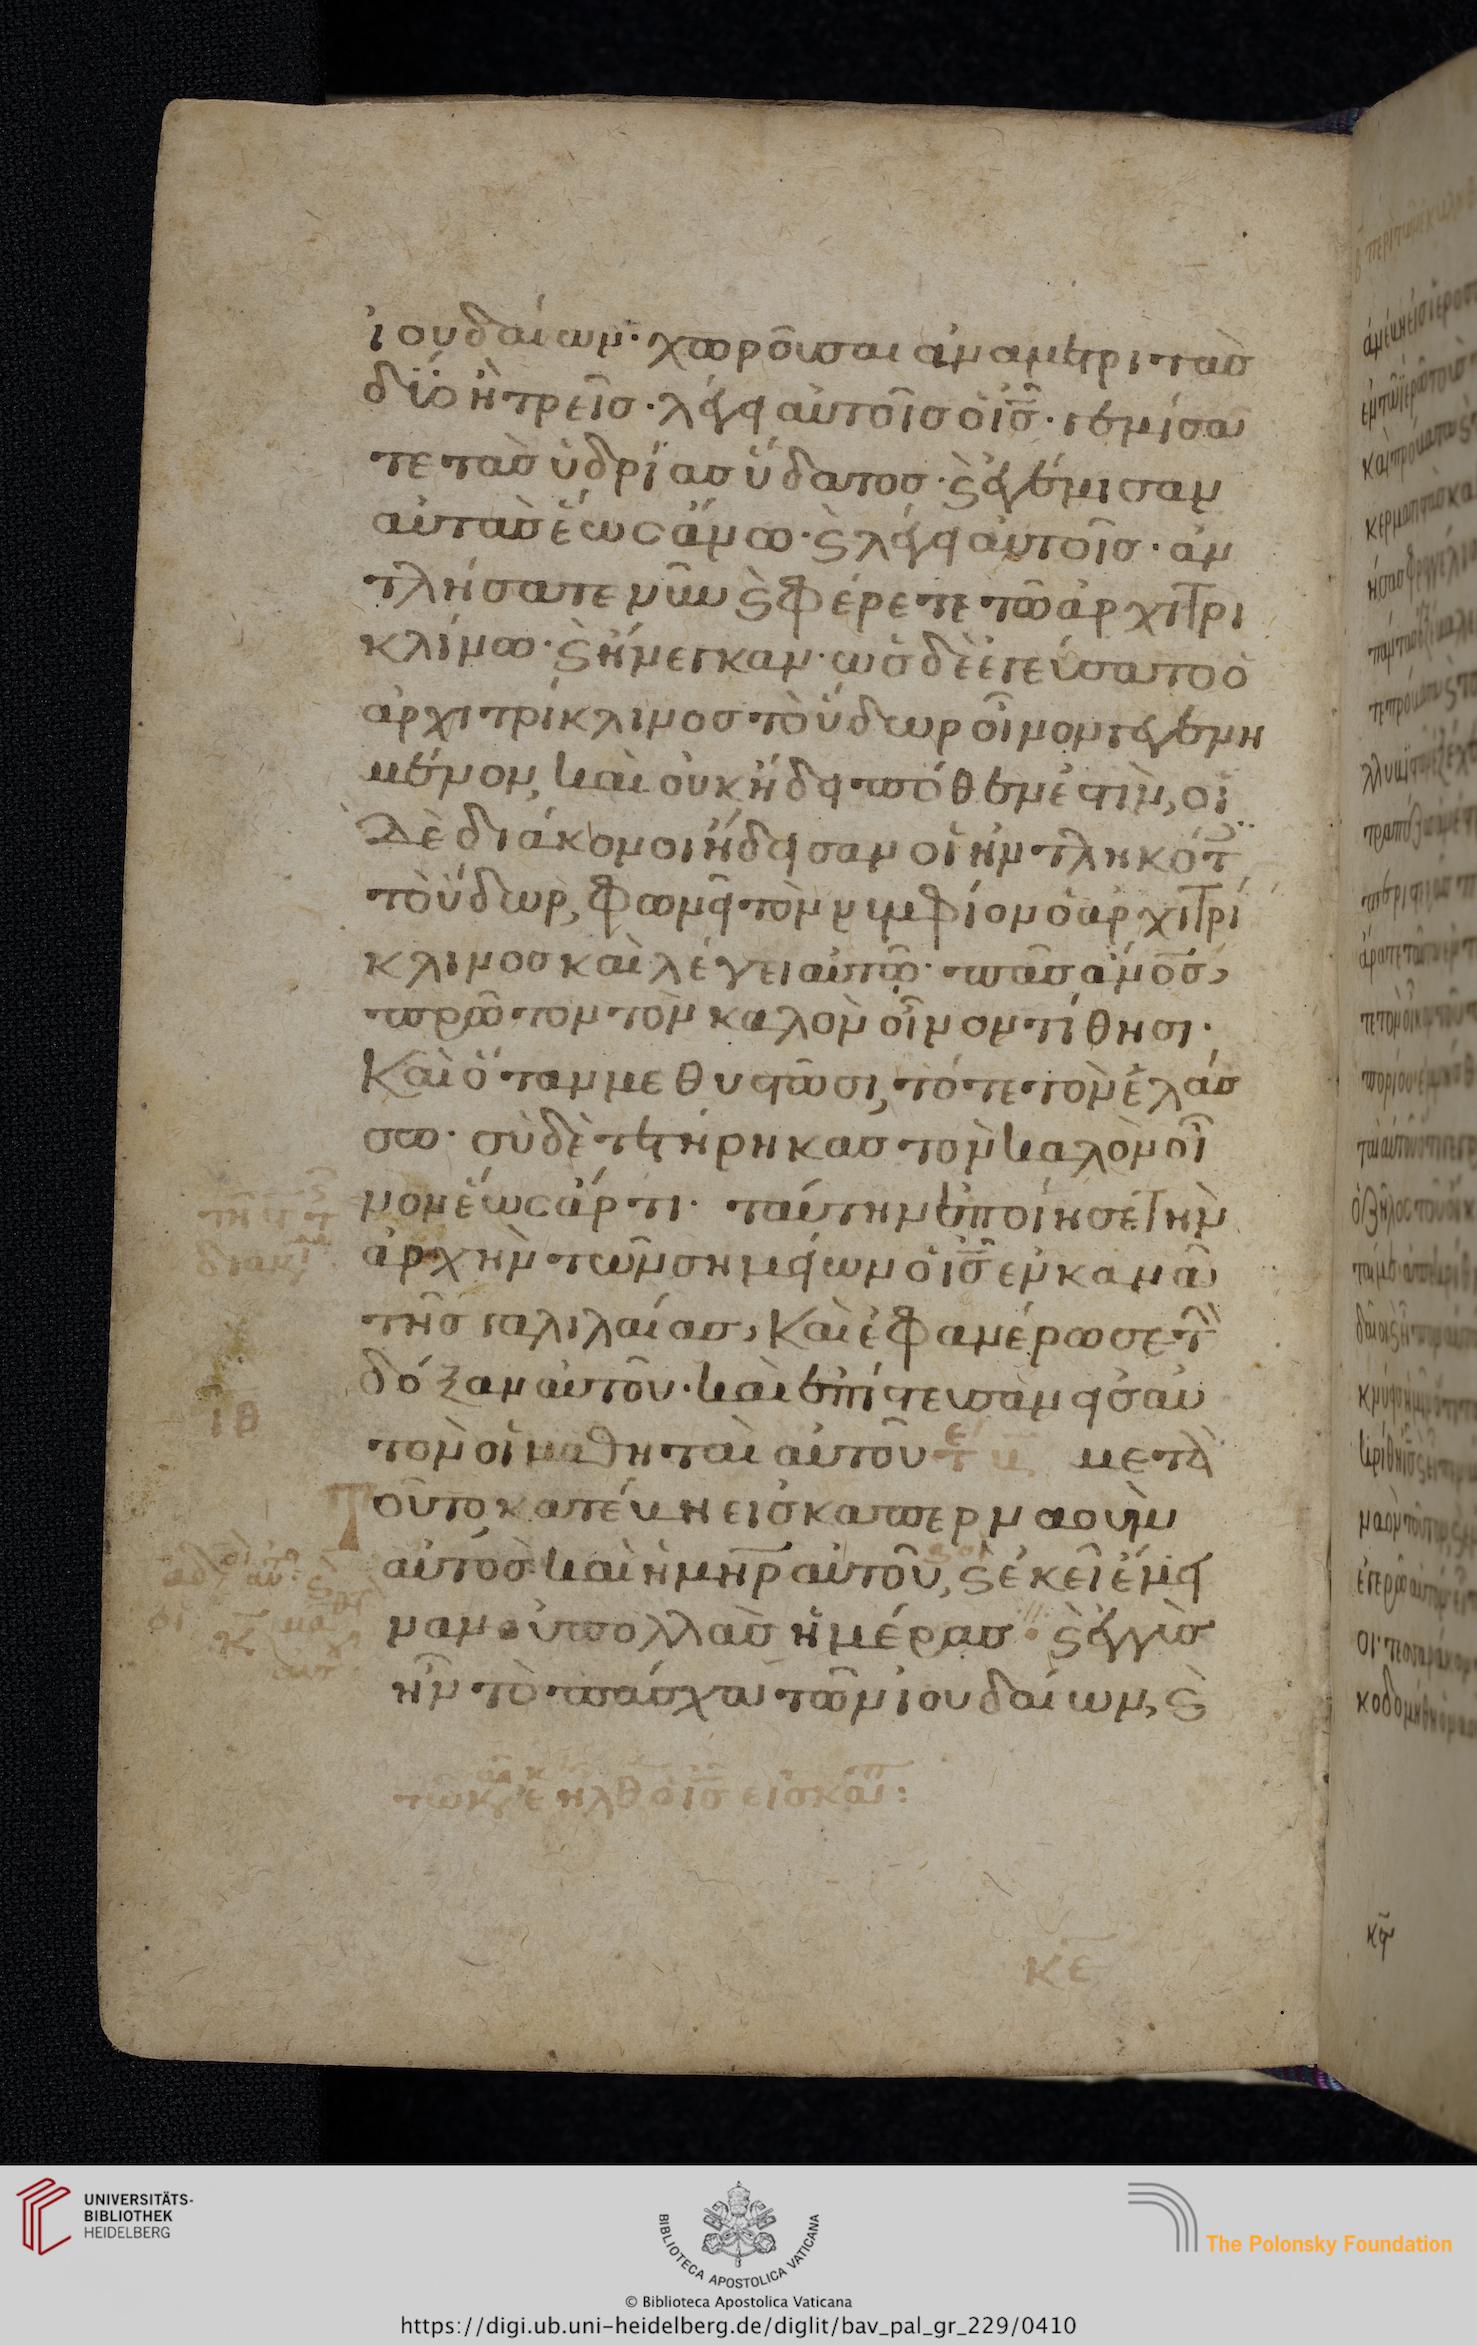 ἰουδαίων· χωροῦσαι ἀνα μετριτὰσ
δύο ἢ τρεῖσ· λέγει αὐτοῖσ ὁ ἰ̅σ̅· γεμίσα
τε τὰσ ὑδρίασ ὕδατοσ· ϗ ἐγέμισαν
αὐτὰσ ἕωσ ἄνω· ϗ λέγει αὐτοῖσ· ἀν
τλήσατε νῦν ϗ φέρετε τῶ ἀρχιτρι
κλίνω· ϗ ἤνεγκαν· ὡσ δὲ ἐγεύσατο ὁ
ἀρχιτρίκλινοσ τὸ ὕδωρ οἶνον γεγενη
μένον, καὶ οὐκ ἤδει πόθεν ἐστὶν, οἱ
δὲ διάκονοι ἤδεισαν οἱ ἠντληκότ
τὸ ὕδωρ, φωνεῖ τὸν νυμφίον ὁ ἀρχιτρί
κλινοσ καὶ λέγει αὐτῶ· πᾶσ ἄνο̅σ̅,
πρῶτον τὸν καλὸν οἶνον τίθησι·
Καὶ ὅταν μεθυσθῶσι, τότε τὸν ἐλάσ
σω· σὺ δὲ τετήρηκασ τὸν καλὸν οἶ
νον ἕωσ ἄρτι· ταύτην ἐποίησε τὴν
ἀρχὴν τῶν σημείων ὁ ἰ̅σ̅ ἐν κανᾶ
τῆσ γαλιλαίασ, Καὶ ἐφανέρωσε τὴ
δόξαν αὐτοῦ· καὶ ἐπίστευσαν εἰσ αὐ
τὸν οἱ μαθηταὶ αὐτοῦ μετὰ
ιθ
Τοῦτο κατέβη εἰσ καπερναοὺμ
αὐτὸσ καὶ ἡ μη̅ρ̅ αὐτοῦ, ϗ ἐκεῖ ἔμει
ναν οὐ πολλὰσ ἡμέρασ· ϗ ἐγγὺσ
ἦν τὸ πάσχα τῶν ἰουδαίων, ϗ
κε
UNIVERSITÄTS-
BIBLIOTHEK
HEIDELBERG
BIBLIOTECA APOSTOLICA VATICANA
The Polonsky Foundation
© Biblioteca Apostolica Vaticana
https://digi.ub.uni-heidelberg.de/diglit/bav_pal_gr_229/0410